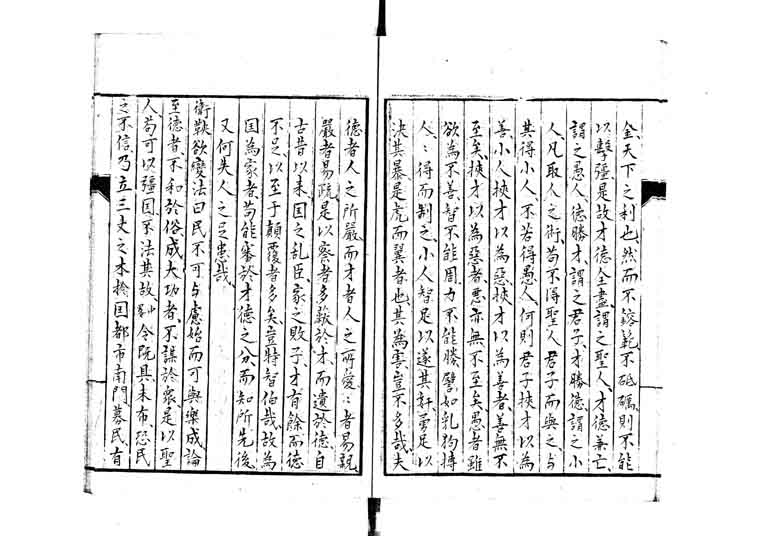 金天下之利也然而不鎔範不砥礪則不能
以擊彊是故才德全盡謂之聖人才德兼亡
謂之愚人德勝才謂之君子才勝德謂之小
人凡取人之術苟不得聖人君子而與之与
其得小人不若得愚人何則君子挾才以為
善小人挾才以為惡挾才以為善者善無不
至矣挾才以為惡者惡亦無不至矣愚者雖
欲為不善智不能周力不能勝譬如乳狗搏
人〻得而制之小人智足以遂其奸勇足以
決其暴是虎而翼者也其為害豈不多哉夫
德者人之所嚴而才者人之所愛〻者易親
嚴者易疏是以察者多蔽於才而遺於德自
古昔以来国之乱臣家之敗子才有餘而德
不足以至于顛覆者多矣豈特智伯哉故為
国為家者苟能審於才德之分而知所先後
又何失人之足患哉
衛鞅欲變法曰民不可与慮始而可與樂成論
至德者不和於俗成大功者不謀於衆是以聖
人苟可以彊国不法其故令既具未布恐民
之不信乃立三丈之木於国都市南門募民有